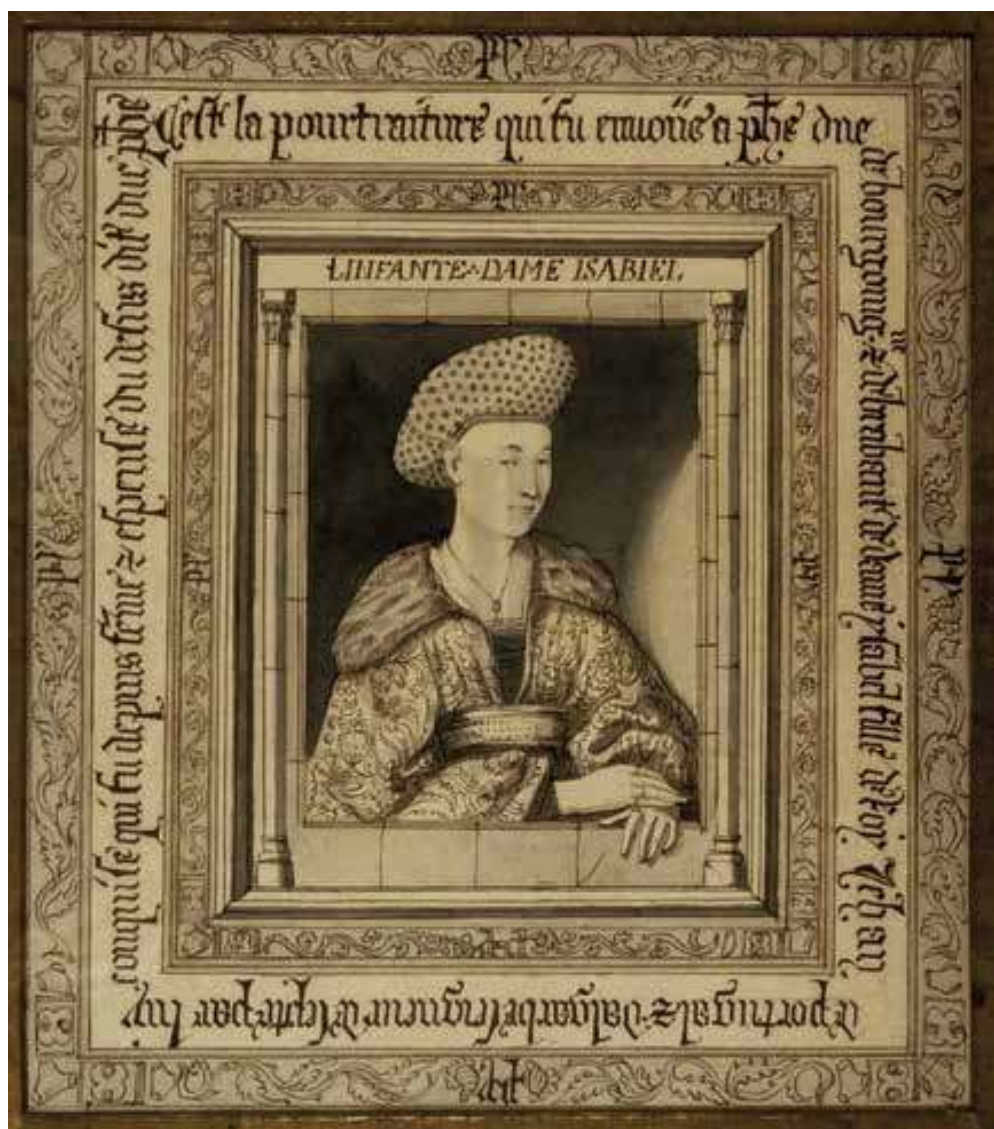 Cest la pourtraiture qui fu enuoiie a phe duc
de bourgoingne & de brabant de dame ysabel fille de Roy Jehan
de portugal & dalgarbe seigneur de septe par luy
conquise qui fu depuis feme & espeuse du desus dit duc phe
LINFANTE DAME ISABIEL